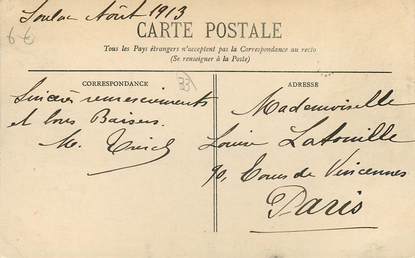 Soulac Août 1913
6€
CARTE POSTALE
Tous les Pays étrangers n'acceptent pas la Correspondance au recto
(Se renseigner à la Poste)
CORRESPONDANCE
33
ADRESSE
Sincères remerciements
et bons Baisers.
M.
Mademoiselle
Louise Latouille
90, Cours de Vincennes
Paris